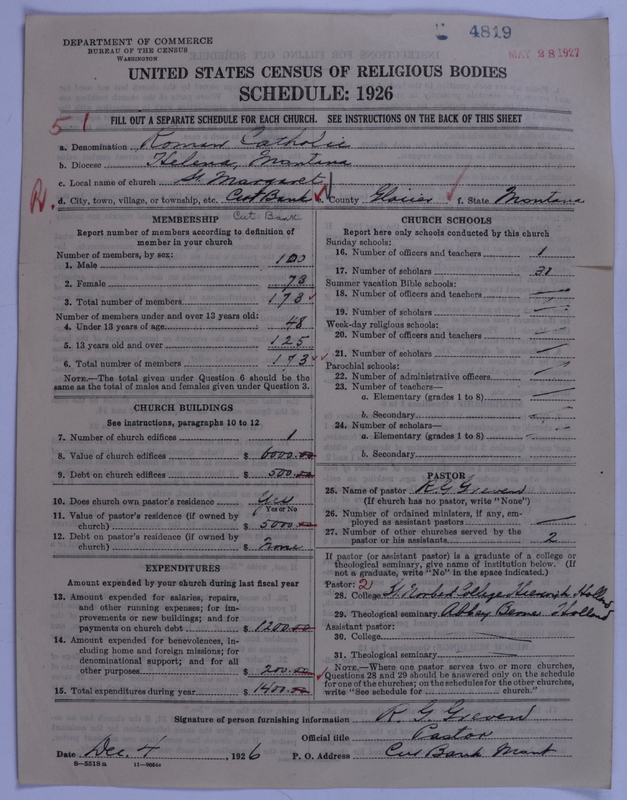 4819
MAY 28 1927
DEPARTMENT OF COMMERCE
BUREAU OF THE CENSUS
WASHINGTON
UNITED STATES CENSUS OF RELIGIOUS BODIES
SCHEDULE: 1926
51
FILL OUT A SEPARATE SCHEDULE FOR EACH CHURCH. SEE INSTRUCTIONS ON THE BACK OF THIS SHEET
a. Denomination Roman Catholic
b. Diocese Helena, Montana
c. Local name of church St Margaret
R. d. City, town, village, or township, etc. Cut Bank County Glacier f. State Montana
Cut Bank
MEMBERSHIP
Report number of members according to definition of member in your church
Number of members, by sex:
1. Male 100
2. Female 73
3. Total number of members 173
Number of members under and over 13 years old:
4. Under 13 years of age 48
5. 13 years old and over 125
6. Total number of members 173
NOTE.—The total given under Question 6 should be the
same as the total of males and females given under Question 3.
CHURCH BUILDINGS
See instructions, paragraphs 10 to 12
7. Number of church edifices 1
8. Value of church edifices $ 6000.00
9. Debt on church edifices $ 500.00
10. Does church own pastor's residence Yes
Yes or No
11. Value of pastor's residence (if owned by
church) $ 5000
12. Debt on pastor's residence (if owned by
church) $ None
EXPENDITURES
Amount expended by your church during last fiscal year
13. Amount expended for salaries, repairs,
and other running expenses; for im-
provements or new buildings; and for
payments on church debt $ 1200.00
14. Amount expended for benevolences, in-
cluding home and foreign missions; for
denominational support; and for all
other purposes $ 200.00
15. Total expenditures during year $ 1400.00
CHURCH SCHOOLS
Report here only schools conducted by this church
Sunday schools:
16. Number of officers and teachers 1
17. Number of scholars 31
Summer vacation Bible schools:
18. Number of officers and teachers
19. Number of scholars
Week-day religious schools:
20. Number of officers and teachers
21. Number of scholars
Parochial schools:
22. Number of administrative officers
23. Number of teachers—
a. Elementary (grades 1 to 8)
b. Secondary
24. Number of scholars—
a. Elementary (grades 1 to 8)
b. Secondary
PASTOR
25. Name of pastor R G Greven
(If church has no pastor, write "None")
26. Number of ordained ministers, if any, em-
ployed as assistant pastors
27. Number of other churches served by the
pastor or his assistants 2
If pastor (or assistant pastor) is a graduate of a college or
theological seminary, give name of institution below. (If
not a graduate, write "No" in the space indicated.)
Pastor: 2
28. College St Norbert College Holland
29. Theological seminary Abbey Berne Holland
Assistant pastor:
30. College
31. Theological seminary
NOTE.—Where one pastor serves two or more churches,
Questions 28 and 29 should be answered only on the schedule
for one of the churches; on the schedules for the other churches,
write "See schedule for church."
Signature of person furnishing information R. G. Greven
Official title Pastor
Date Dec. 4, 1926 P. O. Address Cut Bank Mont
8—5518a 11—9064